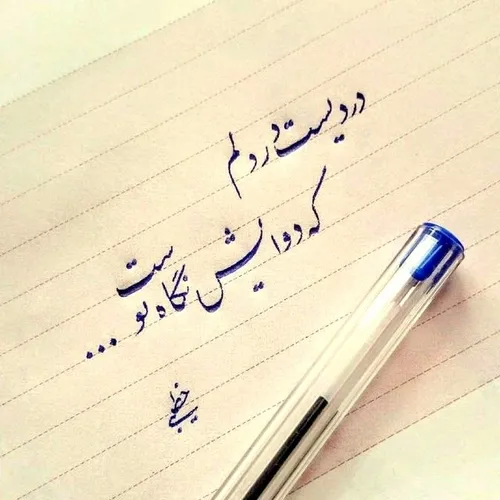 دردیست در دلم
که دوایش نگاه توست...
خطیب